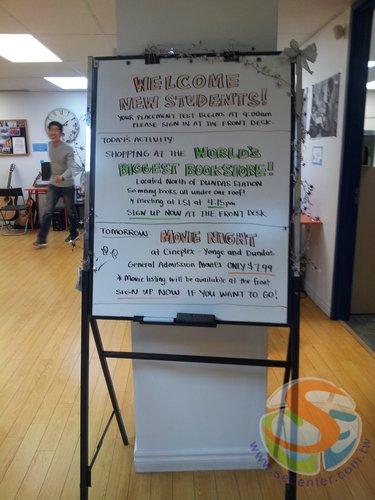 WELCOME
NEW STUDENTS!
YOUR PLACEMENT TEST BEGINS AT 9:00am
PLEASE SIGN IN AT THE FRONT DESK.
TODAY'S ACTIVITY:
SHOPPING AT THE WORLD'S
BIGGEST BOOKSTORE!
LOCATED NORTH OF DUNDAS STATION
So many books all under one roof!
* meeting at LSI at 4:15pm
SIGN UP NOW AT THE FRONT DESK
TOMORROW: MOVIE NIGHT
at Cineplex - Yonge and Dundas
General Admission Movies ONLY $7.99
* Movie listing will be available at the front
SIGN UP NOW IF YOU WANT TO GO!
www.sscenter.com.tw